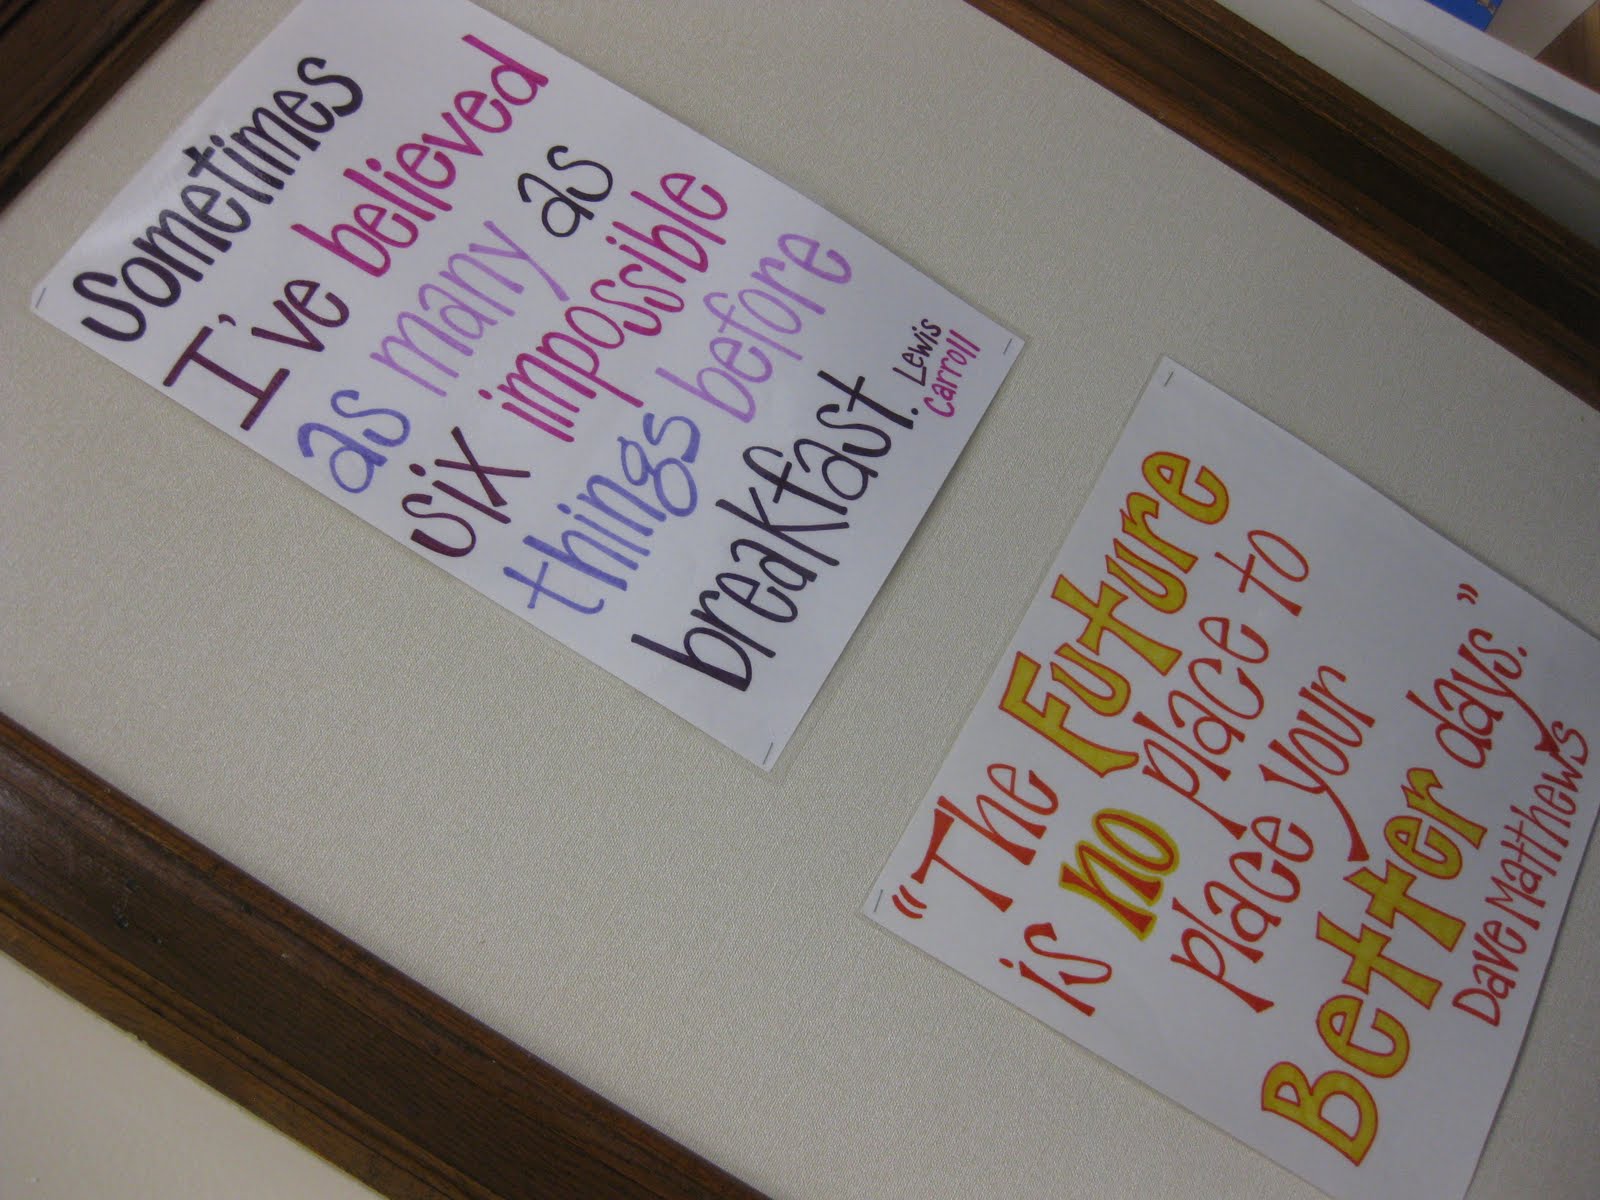 Sometimes
I've believed
as many as
six impossible
things before
breakfast.
Lewis
Carroll
"The Future
is no place to
place your
Better days."
Dave Matthews